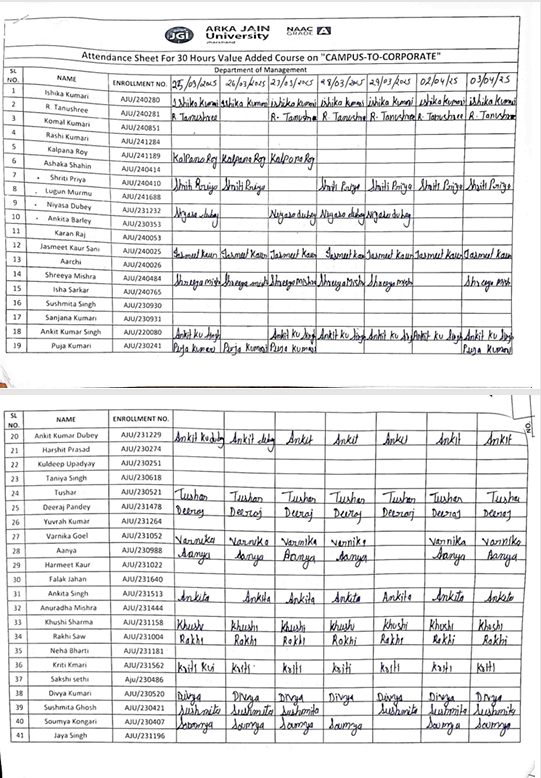 JGI ARKA JAIN University Jharkhand NAAC GRADE A
Attendance Sheet For 30 Hours Value Added Course on "CAMPUS-TO-CORPORATE"
Department of Management
SL NO. NAME ENROLLMENT NO. 25/03/2025 26/03/2025 27/03/2025 28/03/2025 29/03/2025 02/04/25 03/04/25
1 Ishika Kumari AJU/240280 Ishika Kumari Ishika Kumari Ishika Kumari Ishika Kumari Ishika Kumari Ishika Kumari
2 R. Tanushree AJU/240281 R Tanushree R- Tanushree R. Tanushree R. Tanushree R. Tanushree R- Tanushree
3 Komal Kumari AJU/240851
4 Rashi Kumari AJU/241284
5 Kalpana Roy AJU/241189 Kalpana Roy Kalpana Roy Kalpana Roy
6 Ashaka Shahin AJU/240414
7 Shriti Priya AJU/240410 Shriti Priya Shriti Priya Shriti Priya Shriti Priya Shriti Priya Shriti Priya
8 Lugun Murmu AJU/241688
9 Niyasa Dubey AJU/231232 Niyasa dubey Niyasa dubey Niyasa dubey Niyasa dubey
10 Ankita Barley AJU/230353
11 Karan Raj AJU/240053
12 Jasmeet Kaur Sani AJU/240025 Jasmeet Kaur Jasmeet Kaur Jasmeet Kaur Jasmeet Kaur Jasmeet Kaur Jasmeet Kaur Jasmeet Kaur
13 Aarchi AJU/240026
14 Shreeya Mishra AJU/240484 Shreeya mish Shreeya mish Shreeya Mishra Shreeya Mishr Shreeya mish Shreeya Mish
15 Isha Sarkar AJU/240765
16 Sushmita Singh AJU/230930
17 Sanjana Kumari AJU/230931
18 Ankit Kumar Singh AJU/220080 Ankit Ku Singh Ankit Ku Singh Ankit Ku Singh Ankit Ku Singh Ankit Ku Singh Ankit Ku Singh
19 Puja Kumari AJU/230241 Puja Kumari Puja Kumari Puja Kumari Puja Kumari
SL NO. NAME ENROLLMENT NO.
NO.
20 Ankit Kumar Dubey AJU/231229 Ankit ku dubey Ankit dubey Ankit Ankit Ankit Ankit Ankit
21 Harshit Prasad AJU/230274
22 Kuldeep Upadyay AJU/230251
23 Taniya Singh AJU/230618
24 Tushar AJU/230521 Tushar Tushar Tushar Tushar Tushar Tushar Tushar
25 Deeraj Pandey AJU/231478 Deeraj Deeraj Deeraj Deeraj Deeraj Deeraj Deeraj
26 Yuvrah Kumar AJU/231264
27 Varnika Goel AJU/231052 Varnika Varnika Varnika Varnika Varnika Varnika
28 Aanya AJU/230988 Aanya Aanya Aanya Aanya Aanya Aanya
29 Harmeet Kaur AJU/231022
30 Falak Jahan AJU/231640
31 Ankita Singh AJU/231513 Ankita Ankita Ankita Ankita Ankita Ankita Ankita
32 Anuradha Mishra AJU/231444
33 Khushi Sharma AJU/231158 Khushi Khushi Khushi Khushi Khushi Khushi Khushi
34 Rakhi Saw AJU/231004 Rakhi Rakhi Rakhi Rakhi Rakhi Rakhi Rakhi
35 Neha Bharti AJU/231181
36 Kriti Kmari AJU/231562 Kriti Kui Kriti Kriti Kriti Kriti Kriti Kriti
37 Sakshi sethi Aju/230486
38 Divya Kumari AJU/230520 Divya Divya Divya Divya Divya Divya Divya
39 Sushmita Ghosh AJU/230421 Sushmita Sushmita Sushmita Sushmita Sushmita Sushmita
40 Soumya Kongari AJU/230407 Soumya Soumya Soumya Soumya Soumya Soumya
41 Jaya Singh AJU/231196